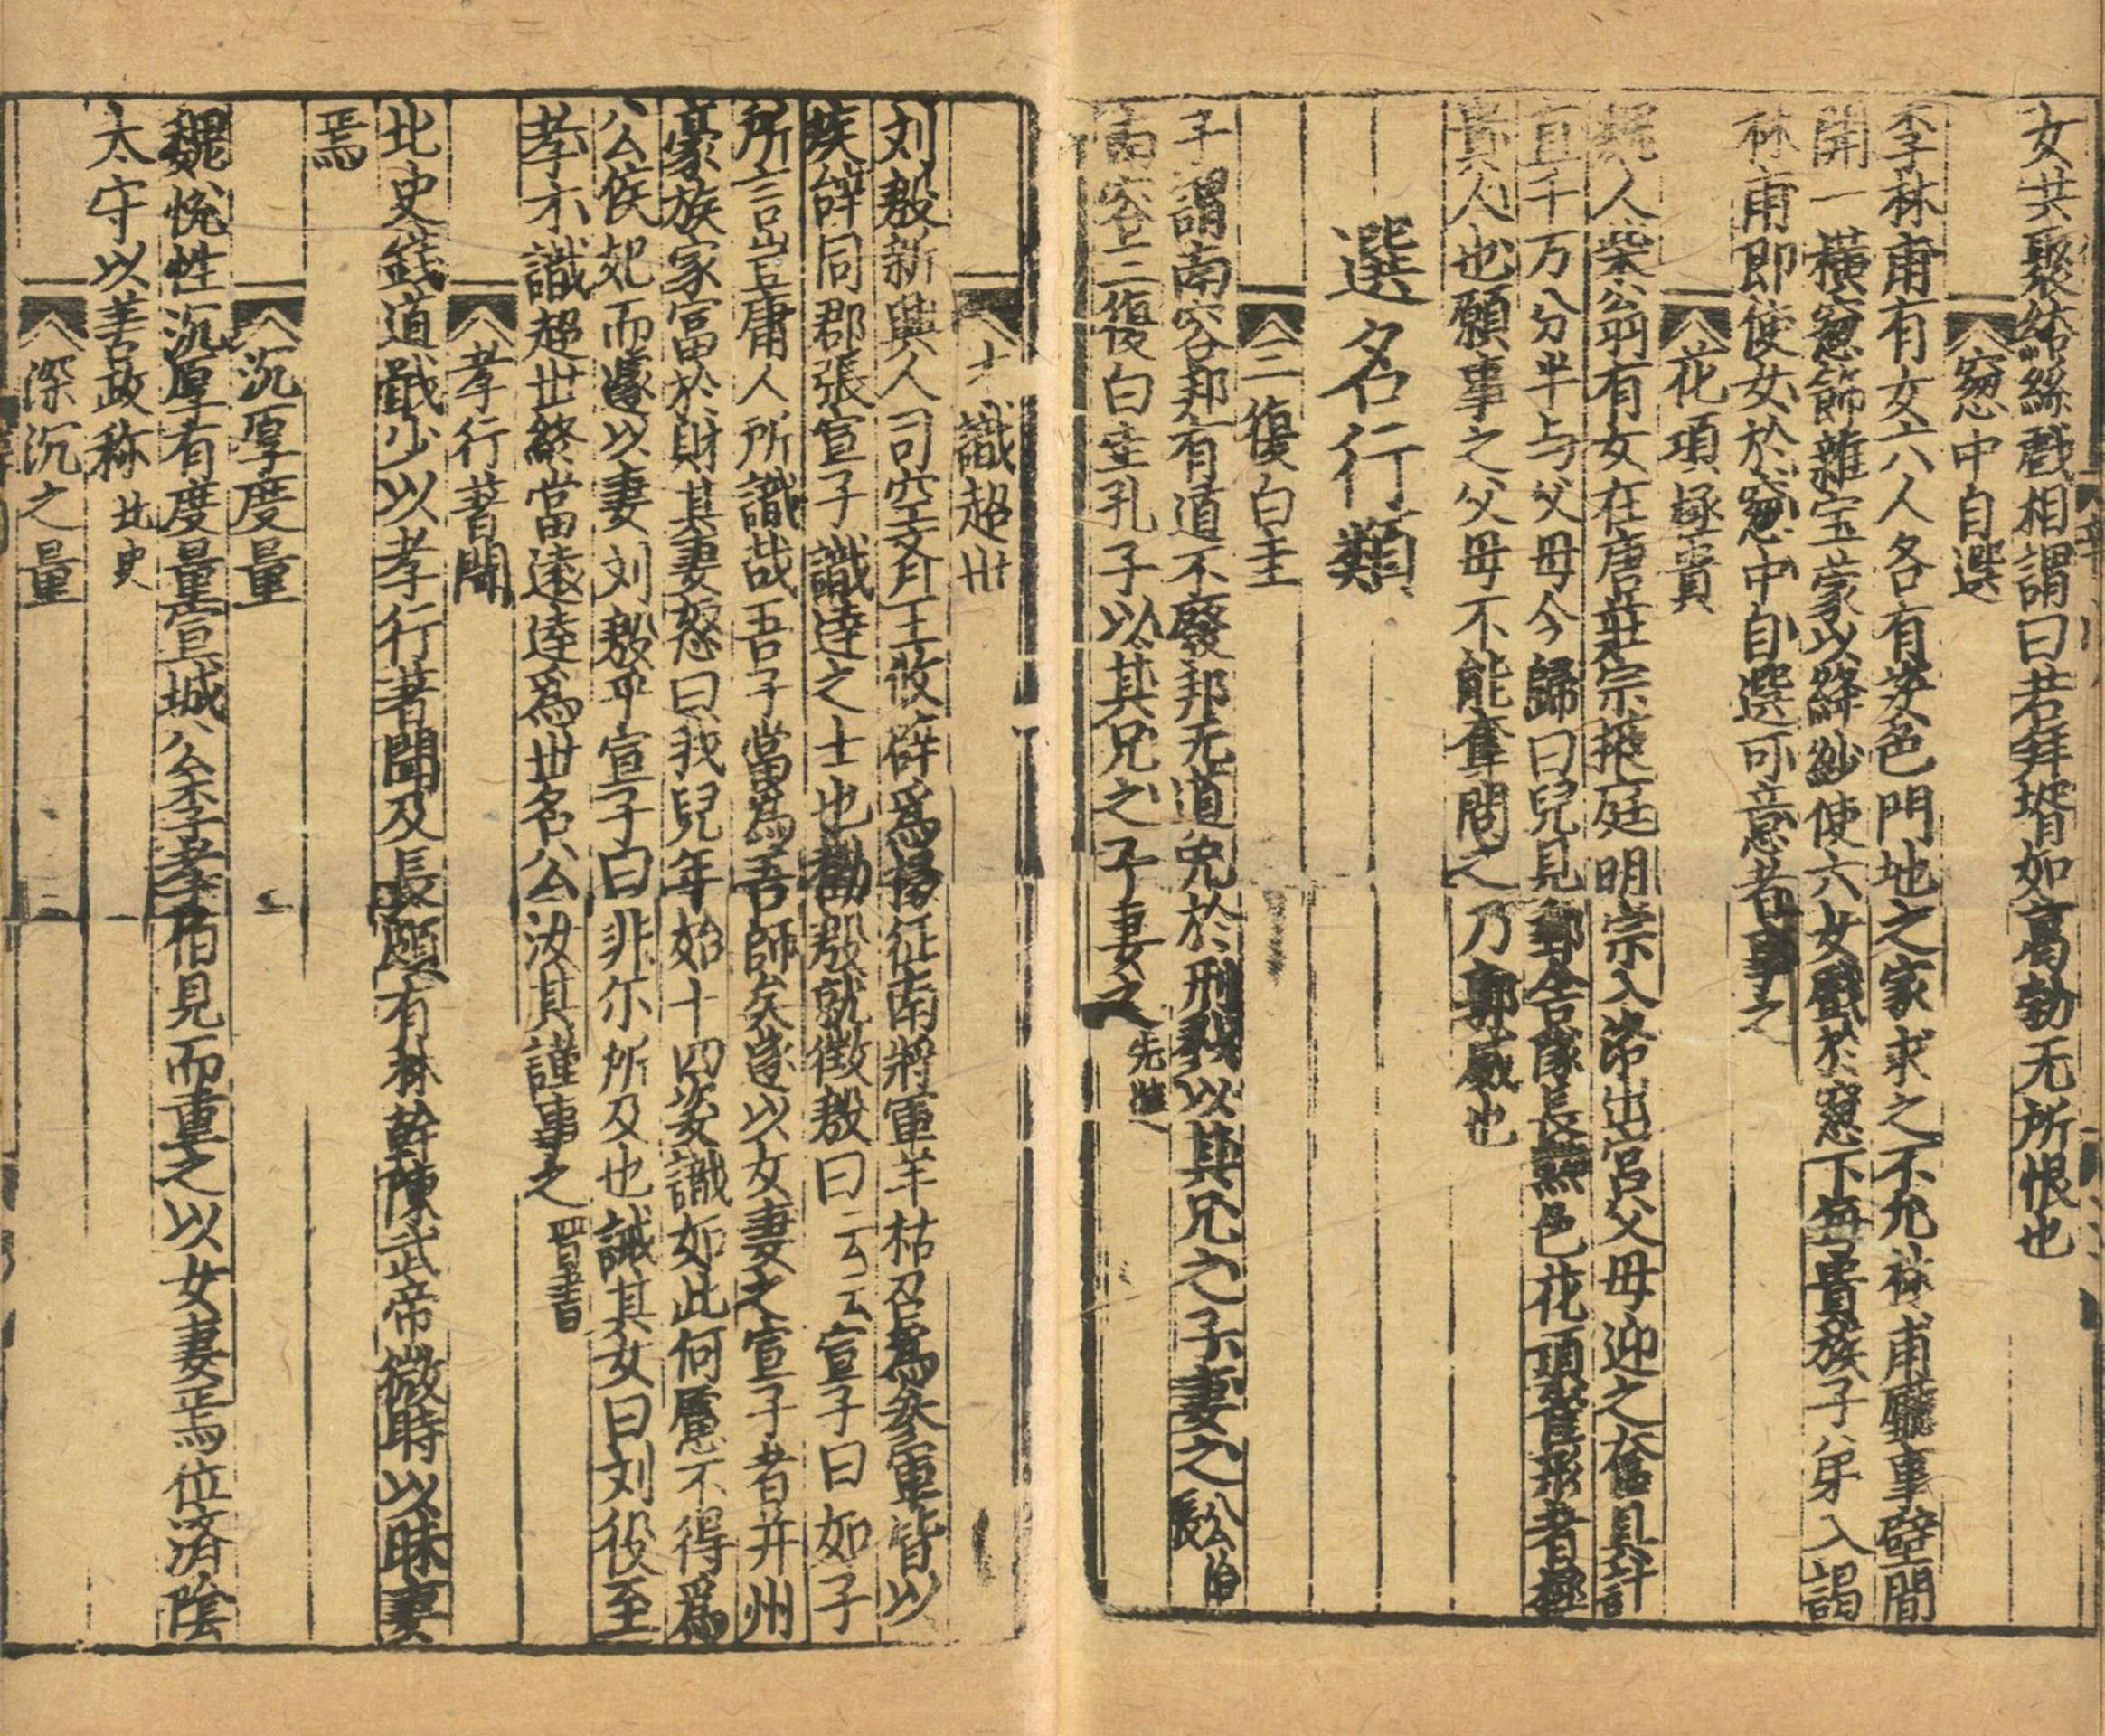 女共聚結絲戲相謂曰若拜壻如高勃无所恨也
窓中自選
李林甫有女六人各有姿色門地之家求之不允林甫廳事壁間
開一横窓飾雜宝蒙以絳紗使六女戲於窓下每貴族子弟入謁
林甫即使女於窓中自選可意者事之
花項極貴
魏人柴公翁有女在唐莊宗掖庭明宗入洛出宮父母迎之奩具計
直千万分半与父母今歸曰兒見郵舍隊長黑色花項雀形者極
貴人也願事之父母不能奪問之乃郭威也
選名行類
三復白圭
子謂南容邦有道不廢邦无道免於刑戮以其兄之子妻之
南容三復白圭孔子以其兄之子妻之 先進
才識超世
刘殷新興人司空齊王攸辟爲掾征南將軍羊枯召爲參軍皆以
疾辞同郡張宣子識達之士也勸殷就徵殷曰云云宣子曰如子
所言豈庸人所識哉吾子當爲吾師矣遂以女妻之宣子者并州
豪族家富於財其妻怒曰我兒年始十四姿識如此何慮不得爲
公侯妃而遽以妻刘殷乎宣子曰非尓所及也誡其女曰刘役至
孝才識超世終當遠逹爲世名公汝其謹事之 晋書
孝行著聞
北史錢道戢少以孝行著聞及長頗有材幹陳武帝微時以昧妻
焉
沉厚度量
魏悦性沉厚有度量宣城公李孝伯見而重之以女妻焉位済陰
太守以善政称 北史
深沉之量